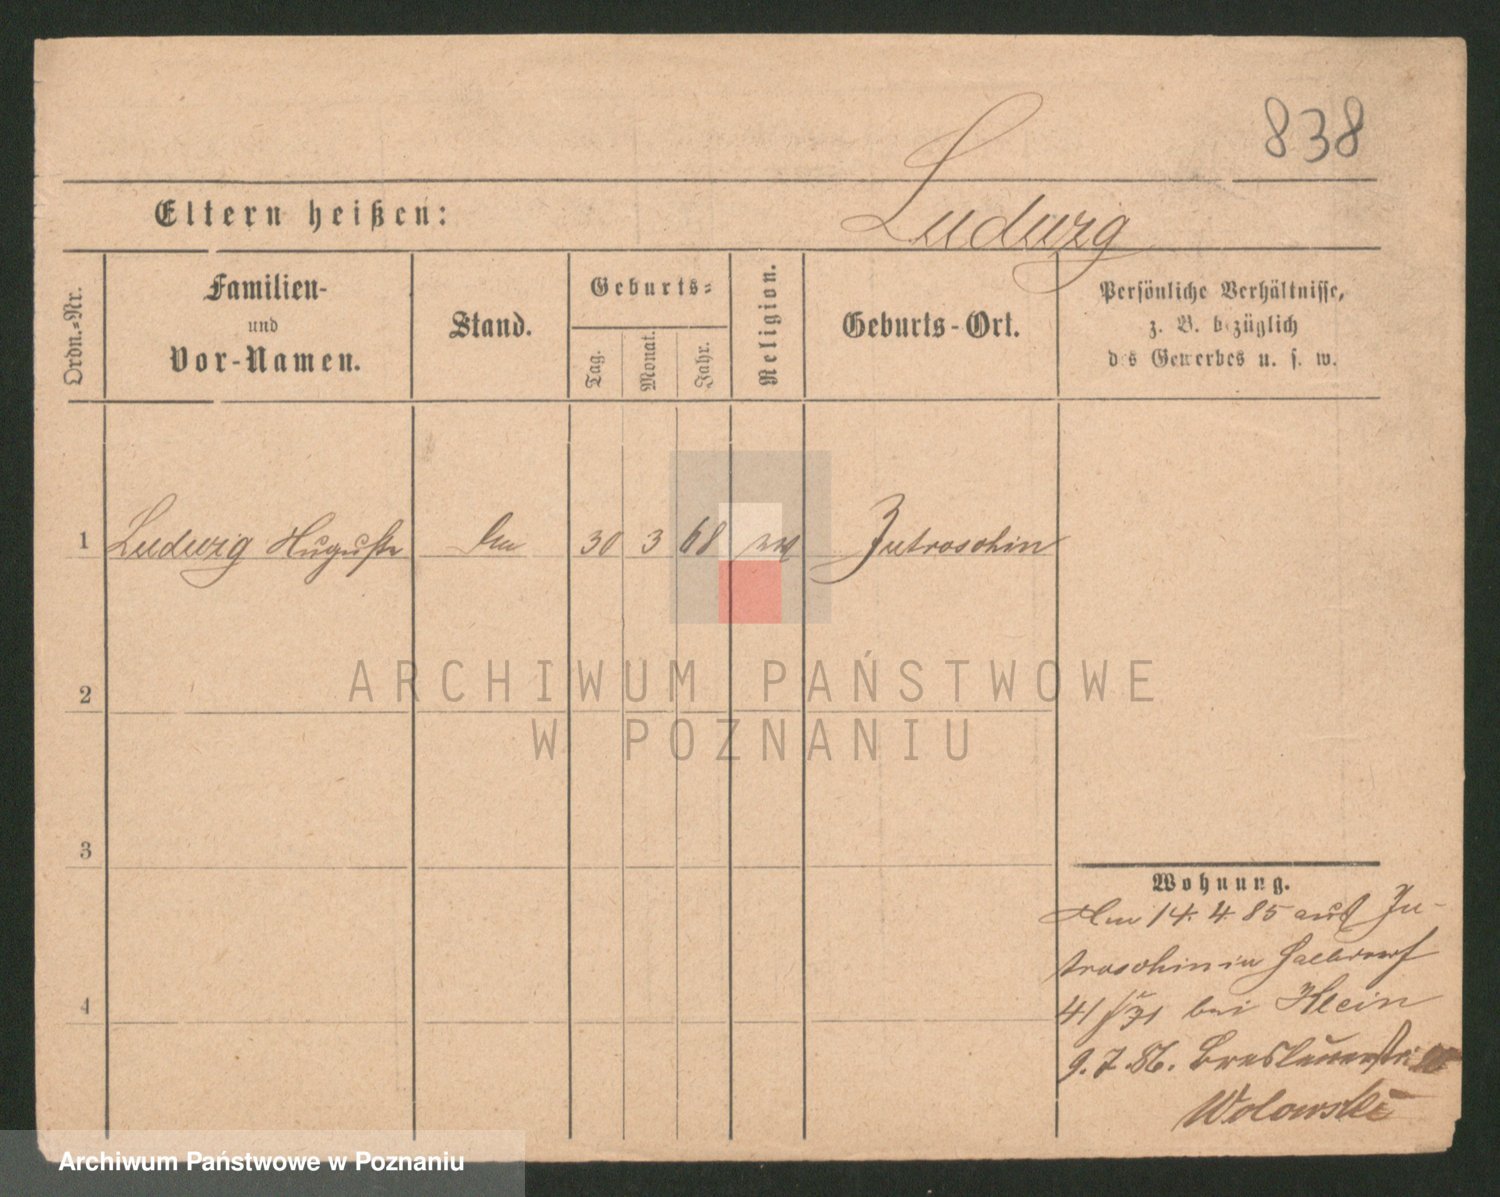 838
Eltern heißen:
Ludwig
Ordn.-Nr.
Familien-
und
Vor-Namen.
Stand.
Geburts-
Tag.
Monat.
Jahr.
Religion.
Geburts-Ort.
Persönliche Verhältnisse,
z. B. bezüglich
des Gewerbes u. s. w.
1 Ludwig Auguste 30 3 68 Jutroschin
2
3
4
ARCHIWUM PAŃSTWOWE
W POZNANIU
Wohnung.
Am 14. 4. 85 aus Ju-
troschin in Halbdorf
41/ bei Klein
9. 7. 86. Breslauerstr.
Wolowski
Archiwum Państwowe w Poznaniu